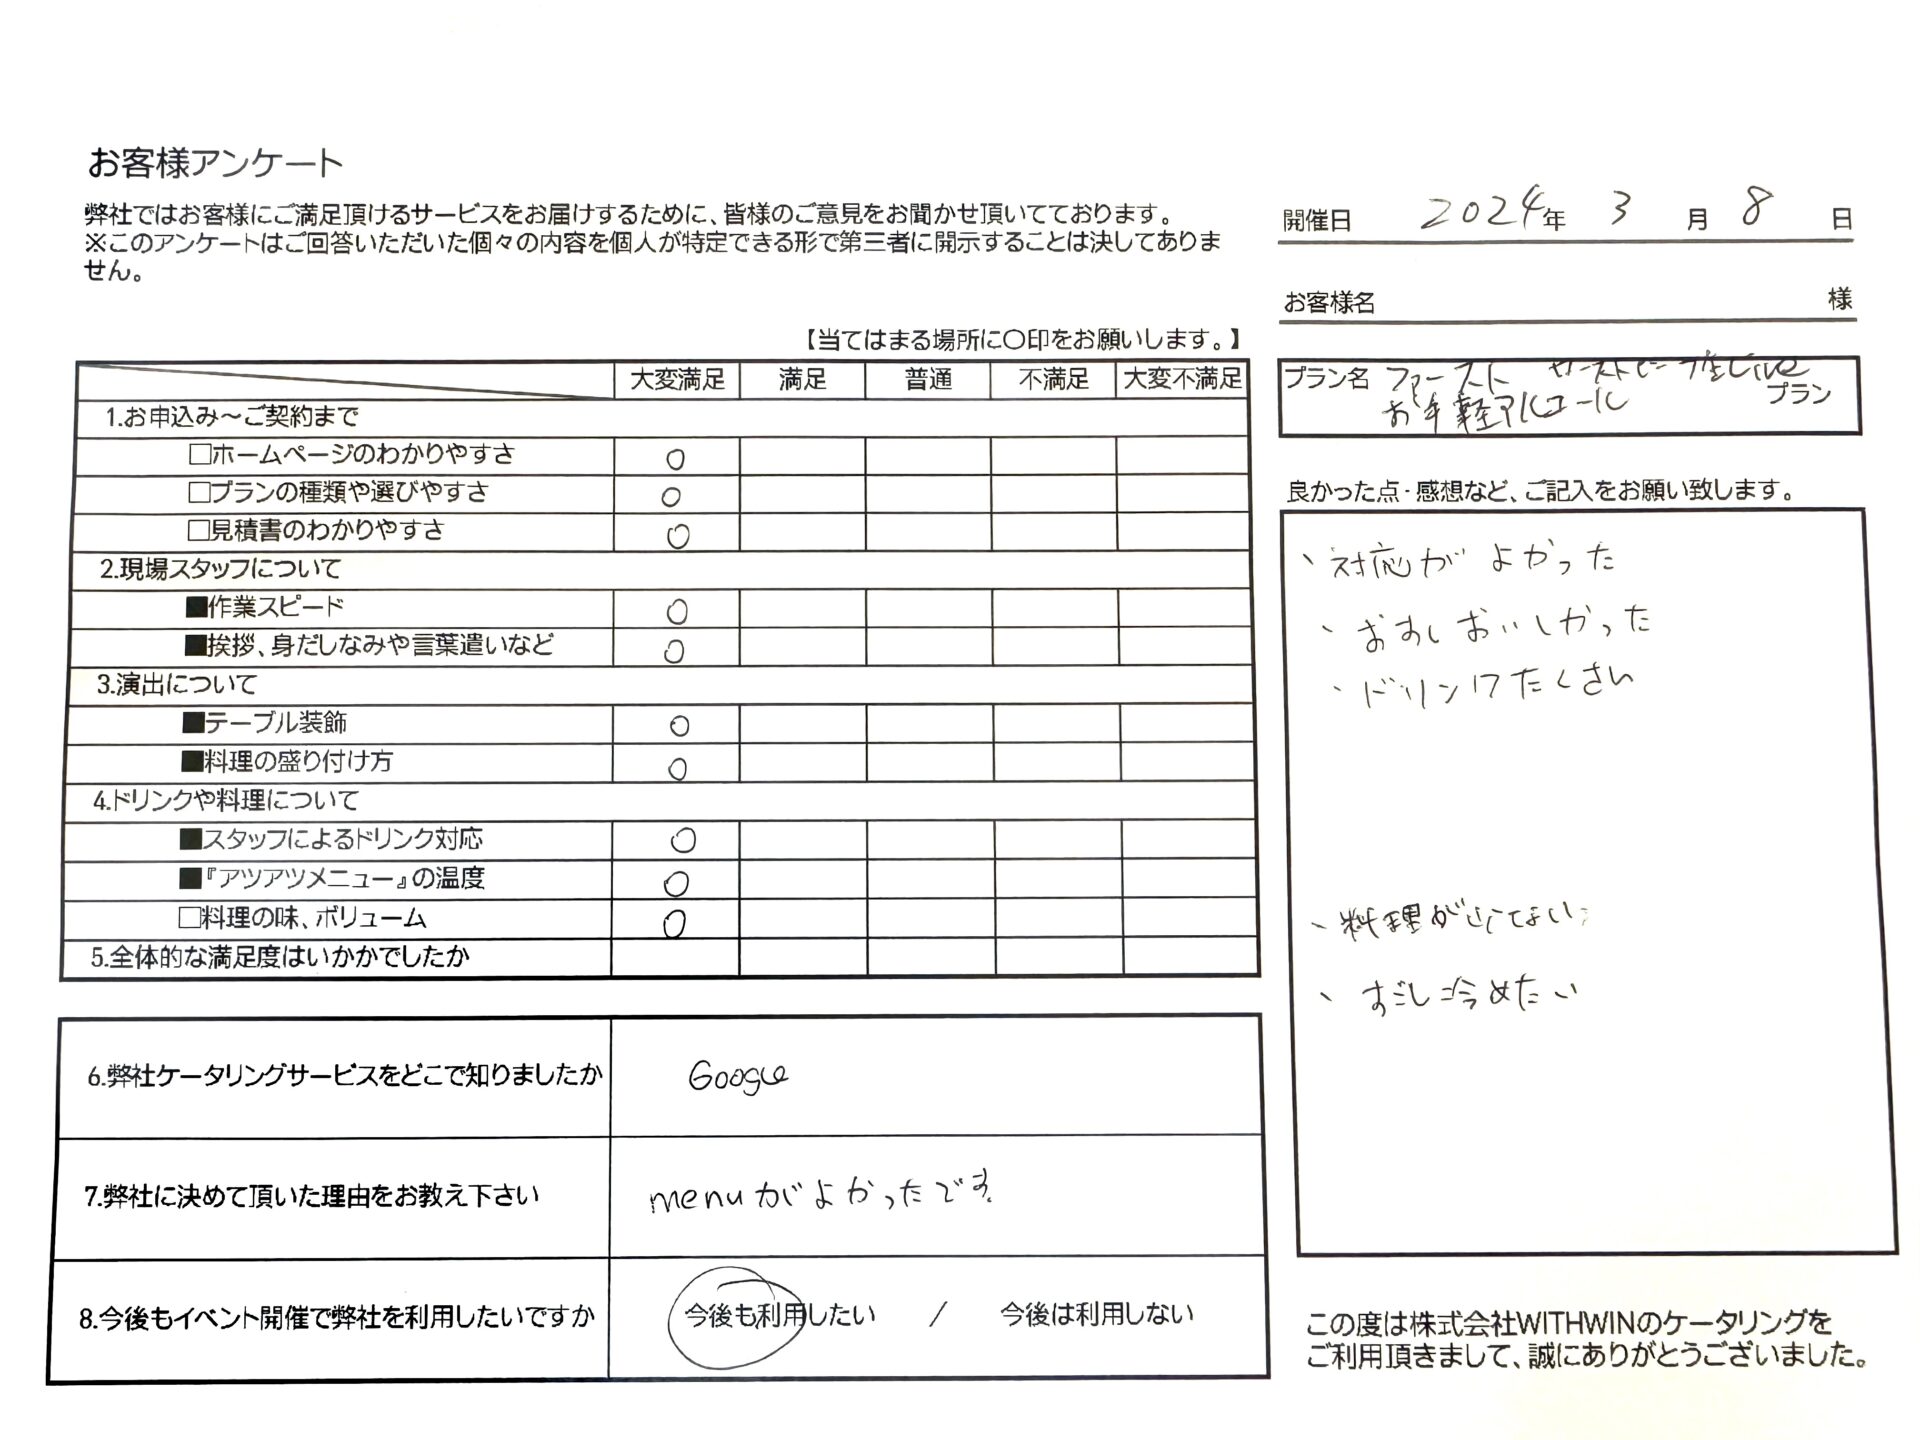 お客様アンケート
弊社ではお客様にご満足頂けるサービスをお届けするために、皆様のご意見をお聞かせ頂いてております。
※このアンケートはご回答いただいた個々の内容を個人が特定できる形で第三者に開示することは決してありま
せん。
【当てはまる場所に〇印をお願いします。】
大変満足 満足 普通 不満足 大変不満足
1.お申込み～ご契約まで
□ホームページのわかりやすさ ○
□プランの種類や選びやすさ ○
□見積書のわかりやすさ ○
2.現場スタッフについて
■作業スピード ○
■挨拶、身だしなみや言葉遣いなど ○
3.演出について
■テーブル装飾 ○
■料理の盛り付け方 ○
4.ドリンクや料理について
■スタッフによるドリンク対応 ○
■『アツアツメニュー』の温度 ○
□料理の味、ボリューム ○
5.全体的な満足度はいかかでしたか
6.弊社ケータリングサービスをどこで知りましたか Google
7.弊社に決めて頂いた理由をお教え下さい menuがよかったです
8.今後もイベント開催で弊社を利用したいですか 今後も利用したい / 今後は利用しない
開催日 2024年 3 月 8 日
お客様名 様
プラン名 ファースト Live
お手軽アルコール プラン
良かった点・感想など、ご記入をお願い致します。
、対応がよかった
、おすしおいしかった
、ドリンクたくさん
、料理が
、すこし冷めたい
この度は株式会社WITHWINのケータリングを
ご利用頂きまして、誠にありがとうございました。